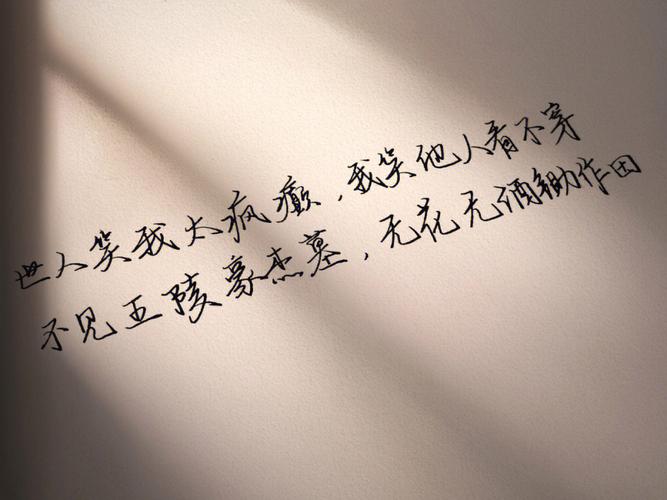 世人笑我太疯癫,我笑他人看不穿
不见五陵豪杰墓,无花无酒锄作田